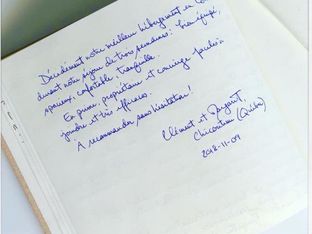 Décidément notre meilleur hébergement en
durant notre séjour de trois semaines: bien équipé,
spacieux, confortable, tranquille.
En prime, propriétaire et concierge faciles à
joindre et très efficaces.
À recommander sans hésitation!
Clément et
Chicoutimi (Québec)
2018-11-09